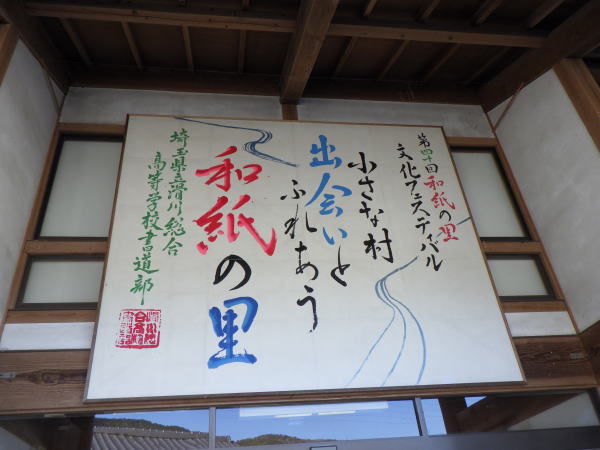 第四十回和紙の里
文化フェスティバル
小さな村
出会いと
ふれあう
和紙の里
埼玉県立滑川総合
高等学校書道部